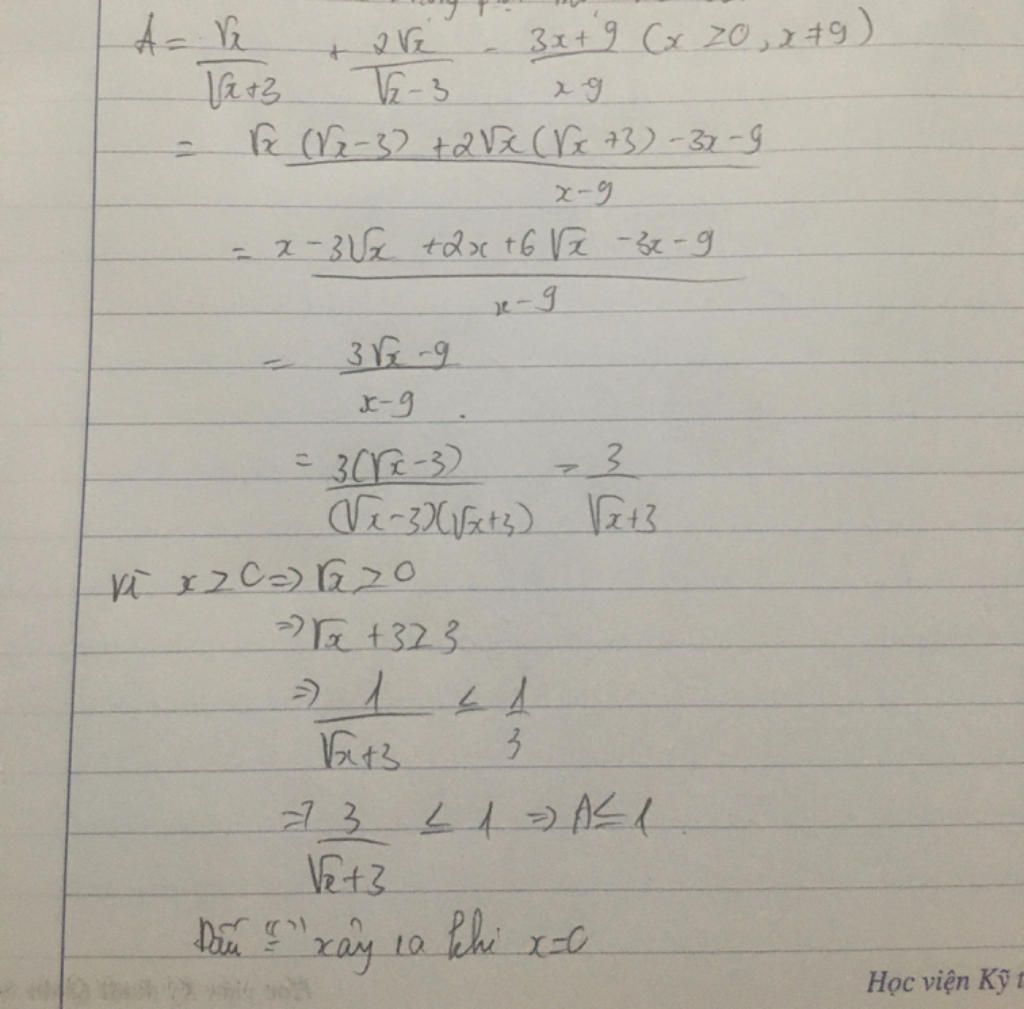 A = √x/(√x+3) + 2√x/(√x-3) - (3x+9)/(x-9) (x ≥0, x≠9)
= (√x (√x-3) +2√x (√x +3) -3x -9)/(x-9)
= (x -3√x +2x +6√x -3x -9)/(x-9)
= (3√x -9)/(x-9).
= 3(√x-3)/((√x-3)(√x+3)) = 3/(√x+3)
Vì x ≥ 0 => √x ≥ 0
=> √x +3 ≥ 3
=> 1/(√x+3) ≤ 1/3
=> 3/(√x+3) ≤ 1 => A ≤ 1
Dấu "=" xảy ra khi x=0
Học viện Kỹ t